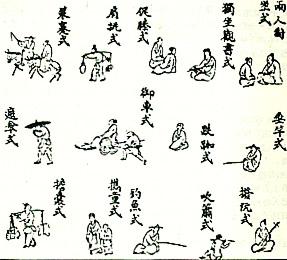 兩人對
坐式
獨坐觀書式
促膝式
肩挑式
乘蹇式
垂竿式
趺跏式
御車式
遮傘式
撥阮式
吹簫式
釣魚式
攜童式